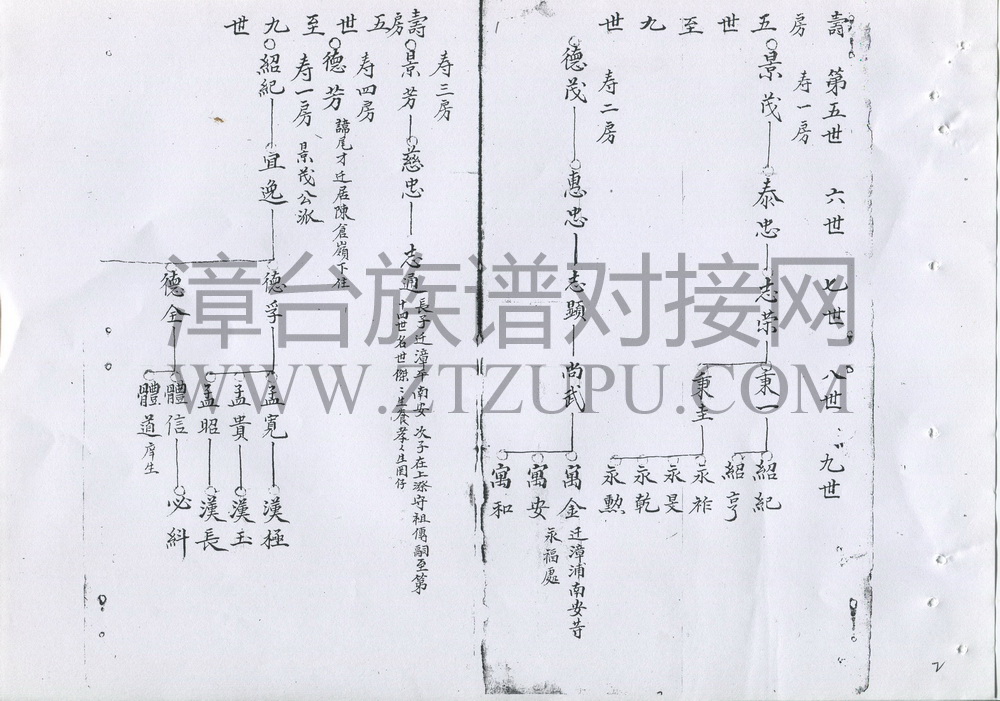 壽房五世至九世
第五世
六世
七世
八世
九世
寿一房
景茂
泰忠
志荣
秉一
秉圭
紹紀
紹亨
永祚
永旻
永乾
永勲
寿二房
德茂
惠忠
志顯
尚武
寓金
迁漳浦南安等
永福處
寓安
寓和
壽房五世至九世
寿三房
景芳
慈忠
志通
長子迁漳平南安 次子在上漈守祖傳嗣至第
十四世名世傑
寿四房
德芳
諱尾才迁居陳倉嶺下住
寿一房 景茂公派
紹紀
宜逸
德孚
德全
孟寬
孟貴
孟昭
體信
體道
庠生
漢極
漢玉
漢長
必糾
漳台族谱对接网
WWW.ZTZUPU.COM
2